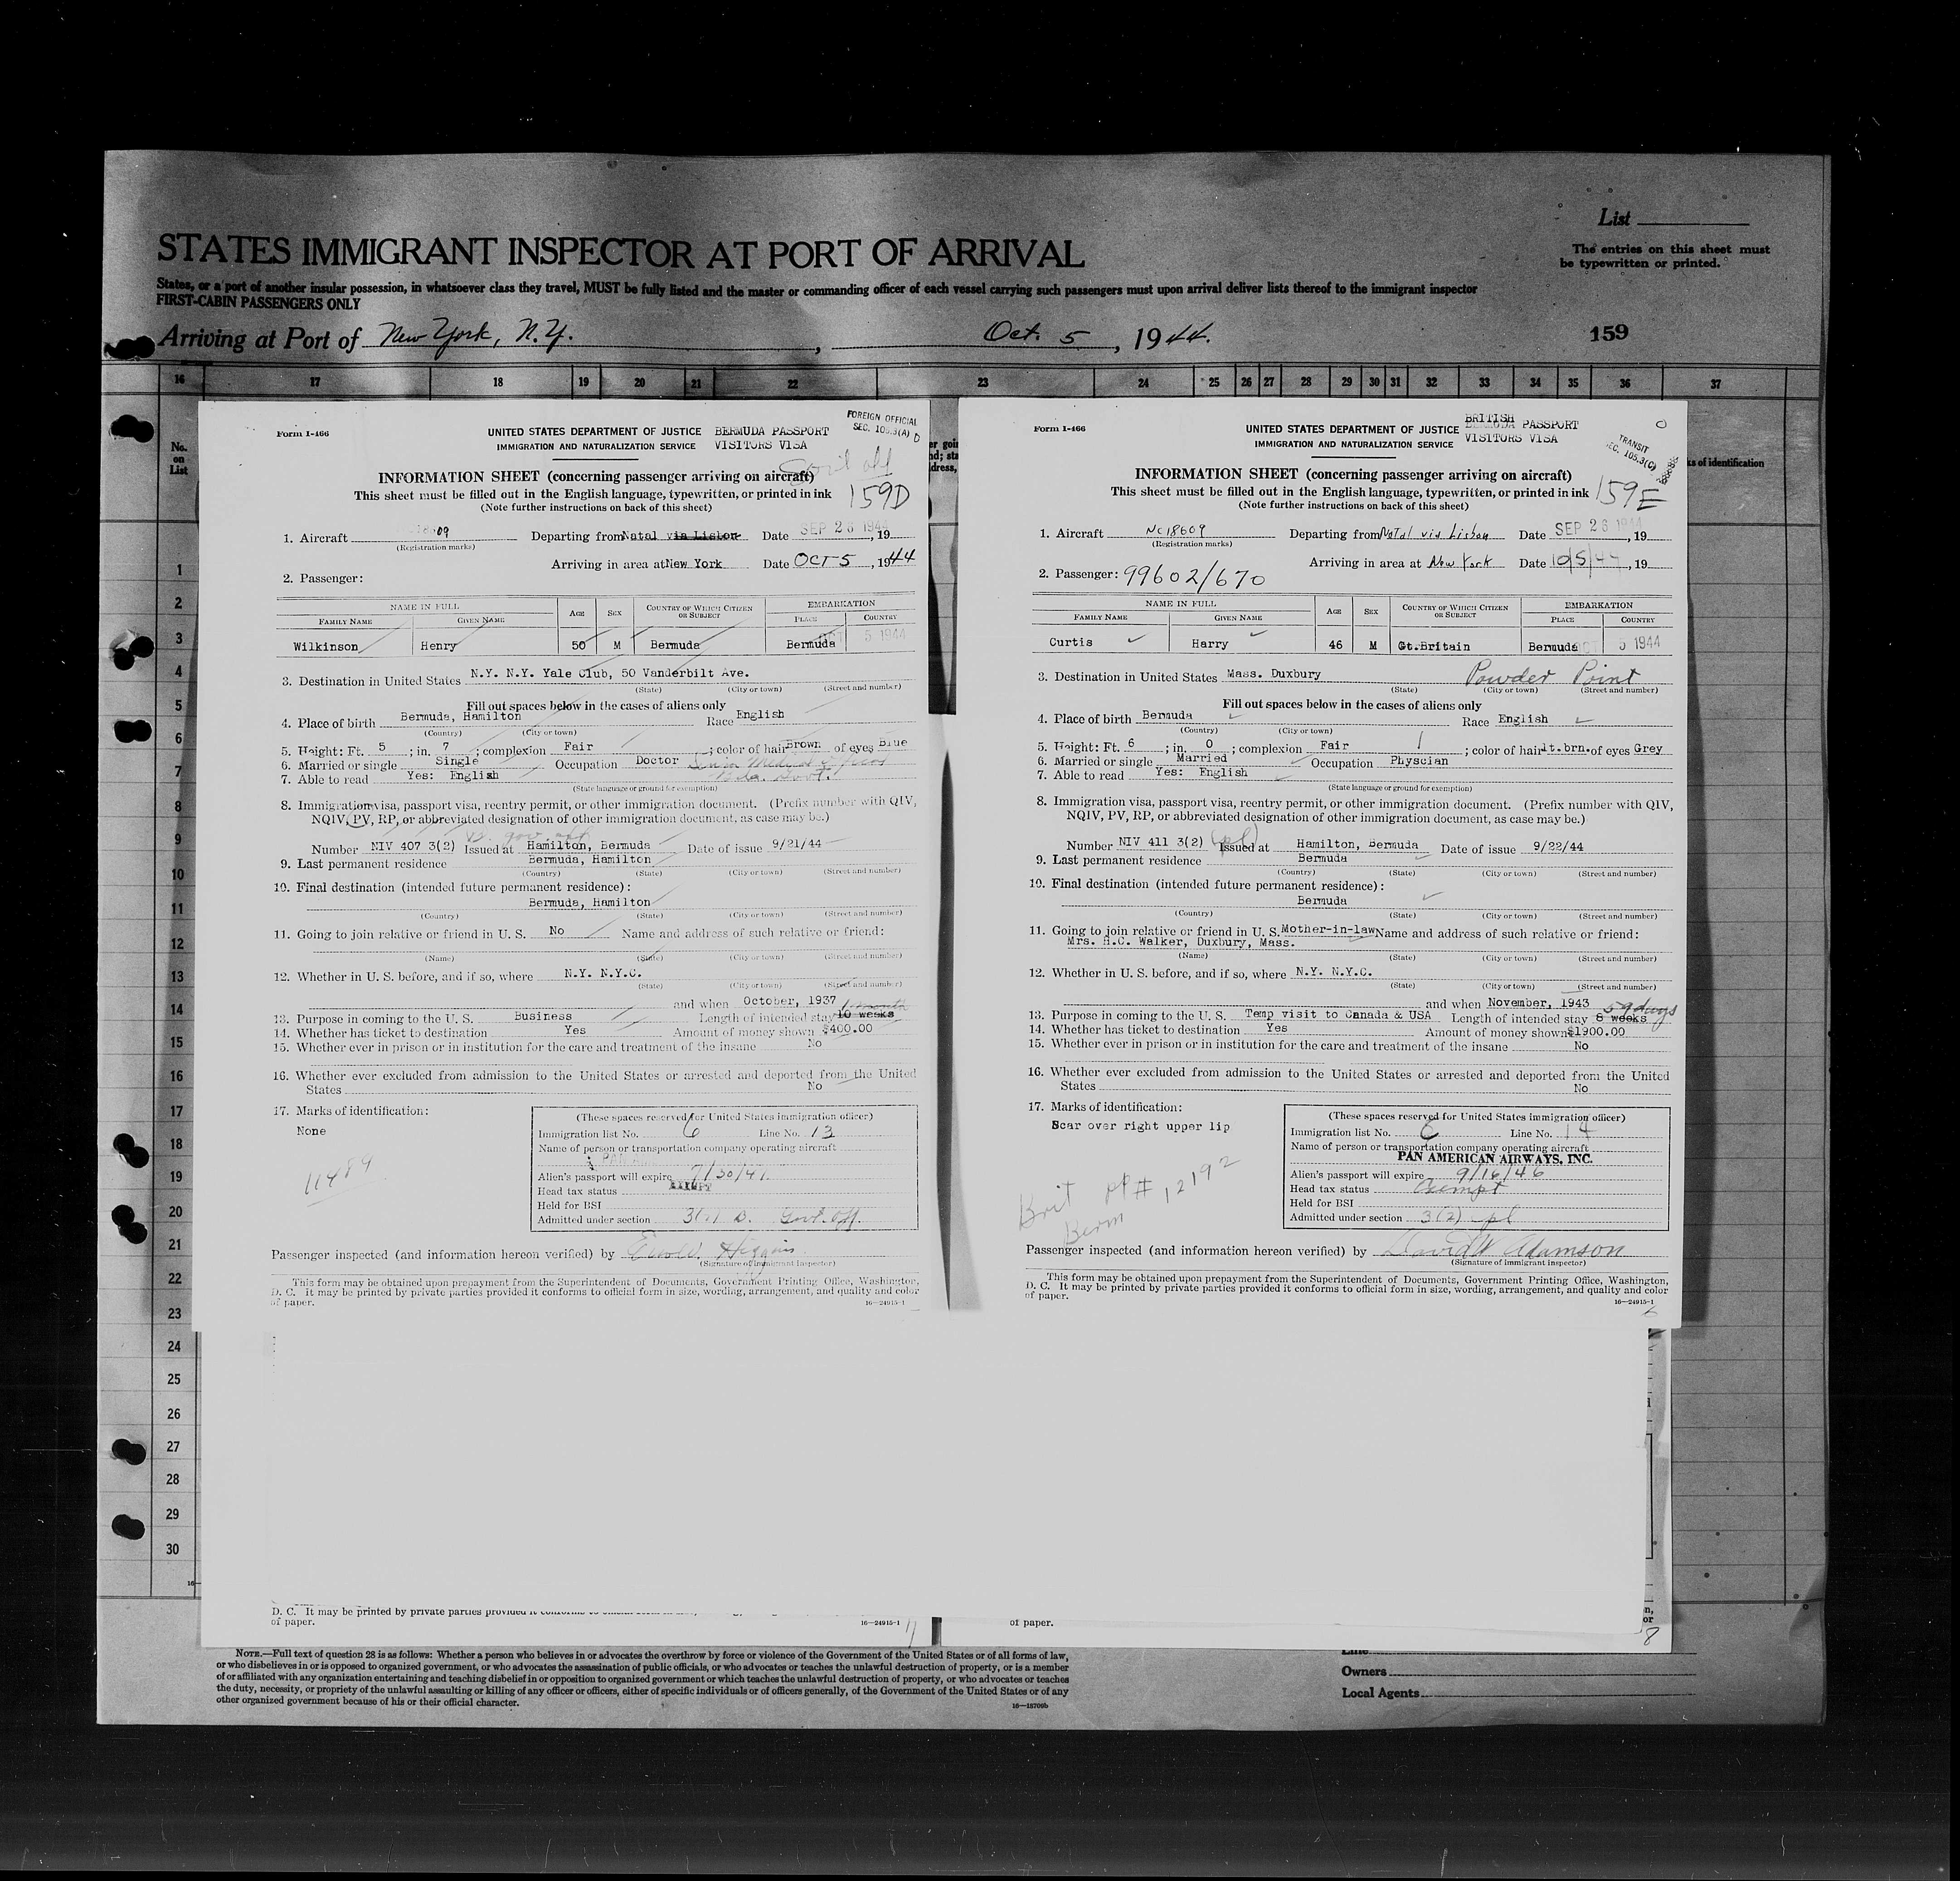 List
STATES IMMIGRANT INSPECTOR AT PORT OF ARRIVAL
The entries on this sheet must
be typewritten or printed.
States, or a port of another insular possession, in whatsoever class they travel, MUST be fully listed and the master or commanding officer of each vessel carrying such passengers must upon arrival deliver lists thereof to the immigrant inspector
FIRST-CABIN PASSENGERS ONLY
Arriving at Port of New York, N.Y. , Oct. 5 , 1944. 159
16 17 18 19 20 21 22 23 24 25 26 27 28 29 30 31 32 33 34 35 36 37
No.
on
List
ks of identification
1
2
3
4
5
6
7
8
9
10
11
12
13
14
15
16
17
18
19
20
21
22
23
24
25
26
27
28
29
30
Form I-466
UNITED STATES DEPARTMENT OF JUSTICE BERMUDA PASSPORT
IMMIGRATION AND NATURALIZATION SERVICE VISITORS VISA
FOREIGN OFFICIAL
SEC. 105.3(A) D
INFORMATION SHEET (concerning passenger arriving on aircraft)
This sheet must be filled out in the English language, typewritten, or printed in ink 159D
(Note further instructions on back of this sheet)
1. Aircraft 09 Departing from Natal via Lisbon Date SEP 26 1944, 19
(Registration marks)
Arriving in area at New York Date OCT 5, 1944
2. Passenger:
NAME IN FULL AGE SEX COUNTRY OF WHICH CITIZEN OR SUBJECT EMBARKATION
FAMILY NAME GIVEN NAME PLACE COUNTRY
Wilkinson Henry 50 M Bermuda Bermuda OCT 5 1944
3. Destination in United States N.Y. N.Y. Yale Club, 50 Vanderbilt Ave.
(State) (City or town) (Street and number)
Fill out spaces below in the cases of aliens only
4. Place of birth Bermuda, Hamilton Race English
(Country) (City or town)
5. Height: Ft. 5 ; in. 7 ; complexion Fair ; color of hair Brown of eyes Blue
6. Married or single Single Occupation Doctor Senior Medical Officer
7. Able to read Yes: English Bda. Govt.
(State language or ground for exemption)
8. Immigration visa, passport visa, reentry permit, or other immigration document. (Prefix number with QIV,
NQIV, PV, RP, or abbreviated designation of other immigration document, as case may be.)
Number NIV 407 3(2) Issued at Hamilton, Bermuda Date of issue 9/21/44
9. Last permanent residence Bermuda, Hamilton
(Country) (State) (City or town) (Street and number)
10. Final destination (intended future permanent residence):
Bermuda, Hamilton
(Country) (State) (City or town) (Street and number)
11. Going to join relative or friend in U. S. No Name and address of such relative or friend:
(Name) (State) (City or town) (Street and number)
12. Whether in U. S. before, and if so, where N.Y. N.Y.C.
(State) (City or town) (Street and number)
and when October, 1937
13. Purpose in coming to the U. S. Business Length of intended stay 10 weeks 1 month
14. Whether has ticket to destination Yes Amount of money shown $400.00
15. Whether ever in prison or in institution for the care and treatment of the insane No
16. Whether ever excluded from admission to the United States or arrested and deported from the United
States No
17. Marks of identification:
None
11489
(These spaces reserved for United States immigration officer)
Immigration list No. 6 Line No. 13
Name of person or transportation company operating aircraft
PAN A
Alien's passport will expire 7/30/47.
Head tax status EXEMPT
Held for BSI
Admitted under section 3(1) B. Govt. Off.
Passenger inspected (and information hereon verified) by Higgins
(Signature of Immigrant Inspector)
This form may be obtained upon prepayment from the Superintendent of Documents, Government Printing Office, Washington,
D. C. It may be printed by private parties provided it conforms to official form in size, wording, arrangement, and quality and color
of paper.
16—24915-1
Form I-466
UNITED STATES DEPARTMENT OF JUSTICE BRITISH BERMUDA PASSPORT
IMMIGRATION AND NATURALIZATION SERVICE VISITORS VISA
TRANSIT
SEC. 105.3(C)
INFORMATION SHEET (concerning passenger arriving on aircraft)
This sheet must be filled out in the English language, typewritten, or printed in ink 159E
(Note further instructions on back of this sheet)
1. Aircraft NC18609 Departing from Natal via Lisbon Date SEP 26 1944, 19
(Registration marks)
Arriving in area at New York Date 10/5/44, 19
2. Passenger: 99602/670
NAME IN FULL AGE SEX COUNTRY OF WHICH CITIZEN OR SUBJECT EMBARKATION
FAMILY NAME GIVEN NAME PLACE COUNTRY
Curtis Harry 46 M Gt.Britain Bermuda OCT 5 1944
3. Destination in United States Mass. Duxbury Powder Point
(State) (City or town) (Street and number)
Fill out spaces below in the cases of aliens only
4. Place of birth Bermuda Race English
(Country) (City or town)
5. Height: Ft. 6 ; in. 0 ; complexion Fair ; color of hair lt.brn. of eyes Grey
6. Married or single Married Occupation Physcian
7. Able to read Yes: English
(State language or ground for exemption)
8. Immigration visa, passport visa, reentry permit, or other immigration document. (Prefix number with QIV,
NQIV, PV, RP, or abbreviated designation of other immigration document, as case may be.)
Number NIV 411 3(2) (pl) Issued at Hamilton, Bermuda Date of issue 9/22/44
9. Last permanent residence Bermuda
(Country) (State) (City or town) (Street and number)
10. Final destination (intended future permanent residence):
Bermuda
(Country) (State) (City or town) (Street and number)
11. Going to join relative or friend in U. S. Mother-in-law Name and address of such relative or friend:
Mrs. H.C. Walker, Duxbury, Mass.
(Name) (State) (City or town) (Street and number)
12. Whether in U. S. before, and if so, where N.Y. N.Y.C.
(State) (City or town) (Street and number)
and when November, 1943
13. Purpose in coming to the U. S. Temp visit to Canada & USA Length of intended stay 8 weeks 59 days
14. Whether has ticket to destination Yes Amount of money shown $1900.00
15. Whether ever in prison or in institution for the care and treatment of the insane No
16. Whether ever excluded from admission to the United States or arrested and deported from the United
States No
17. Marks of identification:
Scar over right upper lip
Brit pp# 12192
Berm
(These spaces reserved for United States immigration officer)
Immigration list No. 6 Line No. 14
Name of person or transportation company operating aircraft
PAN AMERICAN AIRWAYS, INC.
Alien's passport will expire 9/16/46
Head tax status Exempt
Held for BSI
Admitted under section 3(2) pl
Passenger inspected (and information hereon verified) by David W Adamson
(Signature of Immigrant Inspector)
This form may be obtained upon prepayment from the Superintendent of Documents, Government Printing Office, Washington,
D. C. It may be printed by private parties provided it conforms to official form in size, wording, arrangement, and quality and color
of paper.
16—24915-1
D. C. It may be printed by private parties provided it conforms to
of paper.
16—24915-1
of paper.
8
NOTE.—Full text of question 28 is as follows: Whether a person who believes in or advocates the overthrow by force or violence of the Government of the United States or of all forms of law,
or who disbelieves in or is opposed to organized government, or who advocates the assassination of public officials, or who advocates or teaches the unlawful destruction of property, or is a member
of or affiliated with any organization entertaining and teaching disbelief in or opposition to organized government or which teaches the unlawful destruction of property, or who advocates or teaches
the duty, necessity, or propriety of the unlawful assaulting or killing of any officer or officers, either of specific individuals or of officers generally, of the Government of the United States or of any
other organized government because of his or their official character.
16—18709b
Line
Owners
Local Agents